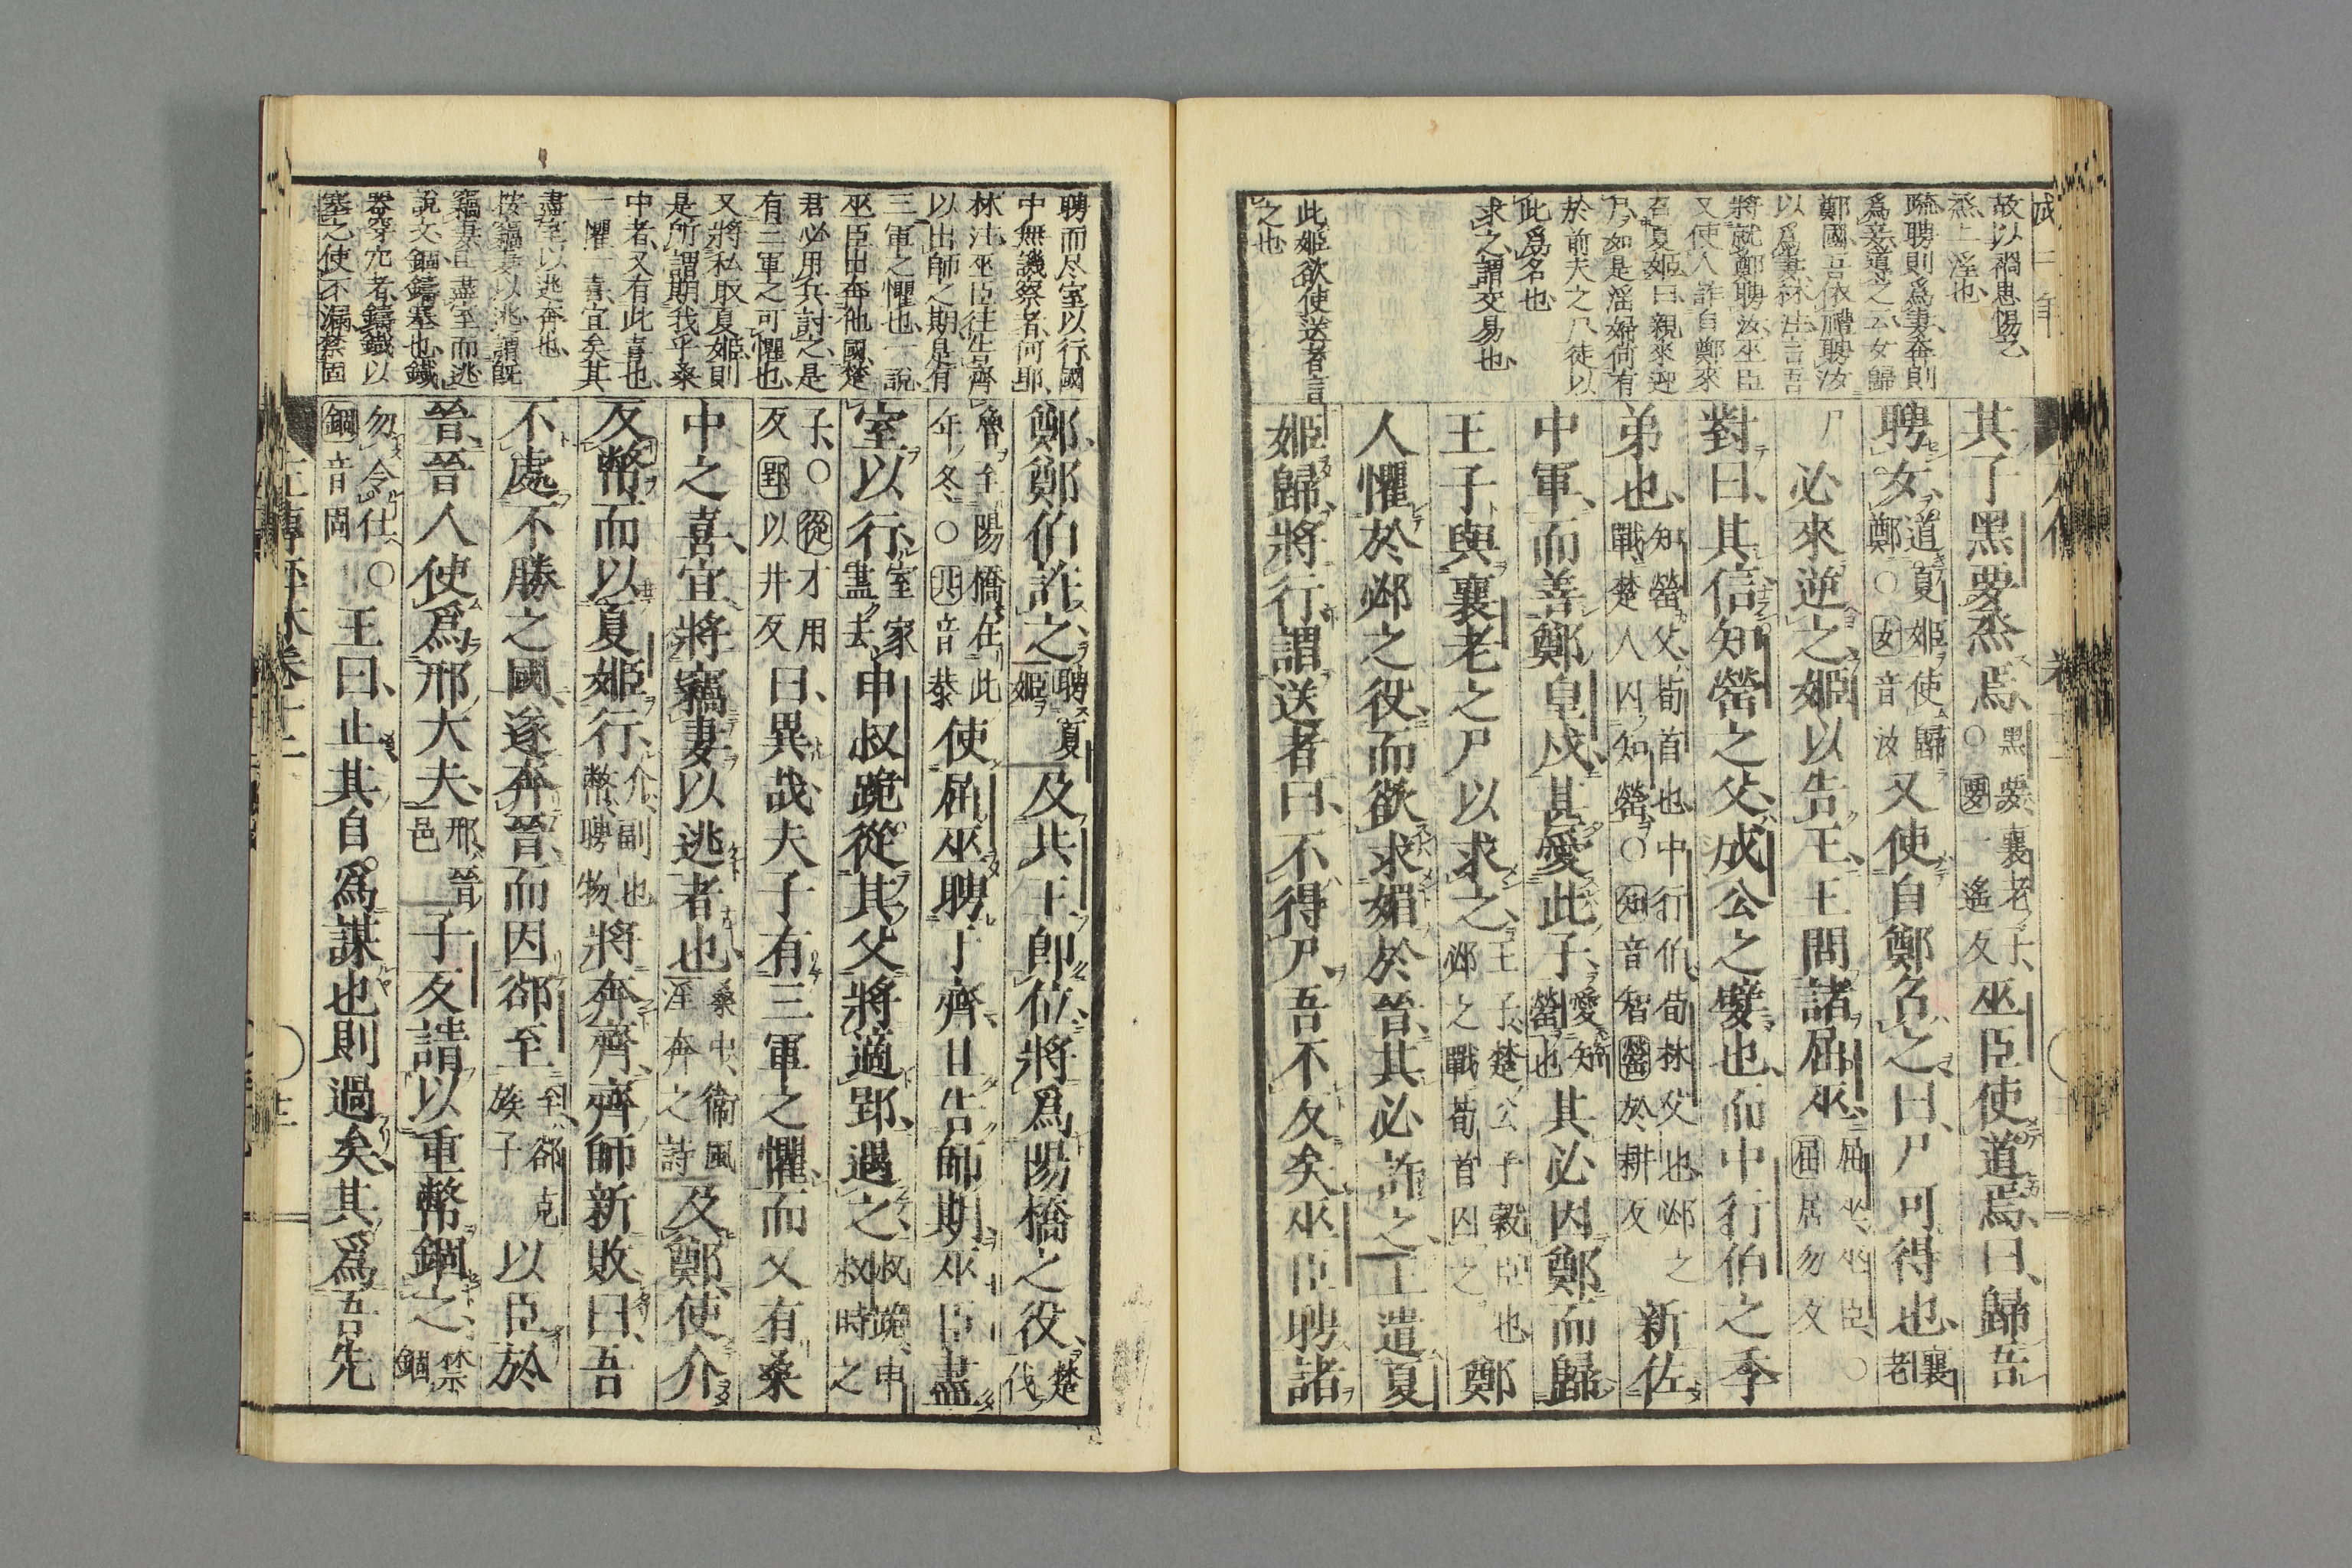 故以禍思惕之
烝上淫也
疏聘則爲妻奔則
爲妾道之云女歸
鄭國吾依禮聘汝
以爲妻林注言吾
將就鄭聘汝巫臣
又使人詐自鄭來
召夏姬曰親來迎
尸如是淫婦尚有
於前夫之尸徒以
此爲名也
求之謂交易也
此姬欲使送者言
之也
其子黑要烝焉黑要襄老子○要一遙反巫臣使道焉曰歸吾
聘女道夏姬使歸鄭○女音汝又使自鄭召之曰尸可得也襄老
尸必來逆之姬以告王王問諸屈巫屈巫巫臣○屈居勿反
對曰其信知罃之父成公之嬖也而中行伯之季
弟也知罃父荀首也中行伯荀林父也邲之戰楚人囚知罃○知音智罃於耕反新佐
中軍而善鄭皇戌甚愛此子愛知罃也其必因鄭而歸
王子與襄老之尸以求之王子楚公子穀臣也邲之戰荀首囚之鄭
人懼於邲之役而欲求媚於晉其必許之王遣夏
姬歸將行謂送者曰不得尸吾不反矣巫臣聘諸
聘而尽室以行國
中無譏察者何耶
林注巫臣往告齊
以出師之期是有
三軍之懼也一說
巫臣出奔他國楚
君必用兵討之是
有三軍之可懼也
又將私取夏姬則
是所謂期我乎桑
中者又有此喜也
一懼一喜宜矣其
盡室以逃奔也
按竊妻以逃謂既
竊妻正盡室而逃
說文錮鑄塞也鐵
器穿穴者鑄鐵以
塞之使不漏禁固
鄭鄭伯許之聘夏姬及共王即位將爲陽橋之役楚伐
魯至陽橋在此年冬○共音恭使屈巫聘于齊且告師期巫臣盡
室以行室家盡去申叔跪從其父將適郢遇之叔跪申叔時之
子○從才用反郢以井反曰異哉夫子有三軍之懼而又有桑
中之喜宜將竊妻以逃者也桑中衞風淫奔之詩及鄭使介
反幣而以夏姬行介副也幣聘物將奔齊齊師新敗曰吾
不處不勝之國遂奔晉而因郤至至郤克族子以臣於
晉晉人使爲邢大夫邢晉邑子反請以重幣錮之禁錮
勿令仕○錮音固王曰止其自爲謀也則過矣其爲吾先